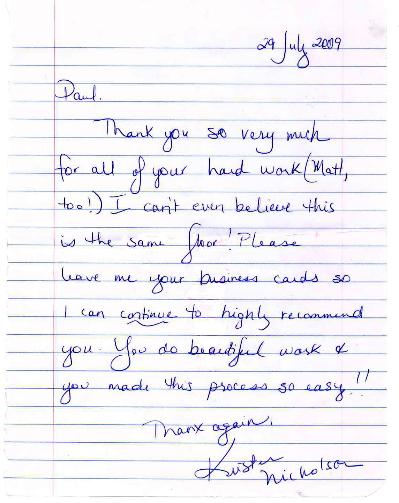 29 July 2009
Paul.
Thank you so very much
for all of your hard work (Matt,
too!) I can't even believe this
is the same floor! Please
leave me your business cards so
I can continue to highly recommend
you. You do beautiful work &
you made this process so easy!!
Thanx again,
Kristen Nicholson